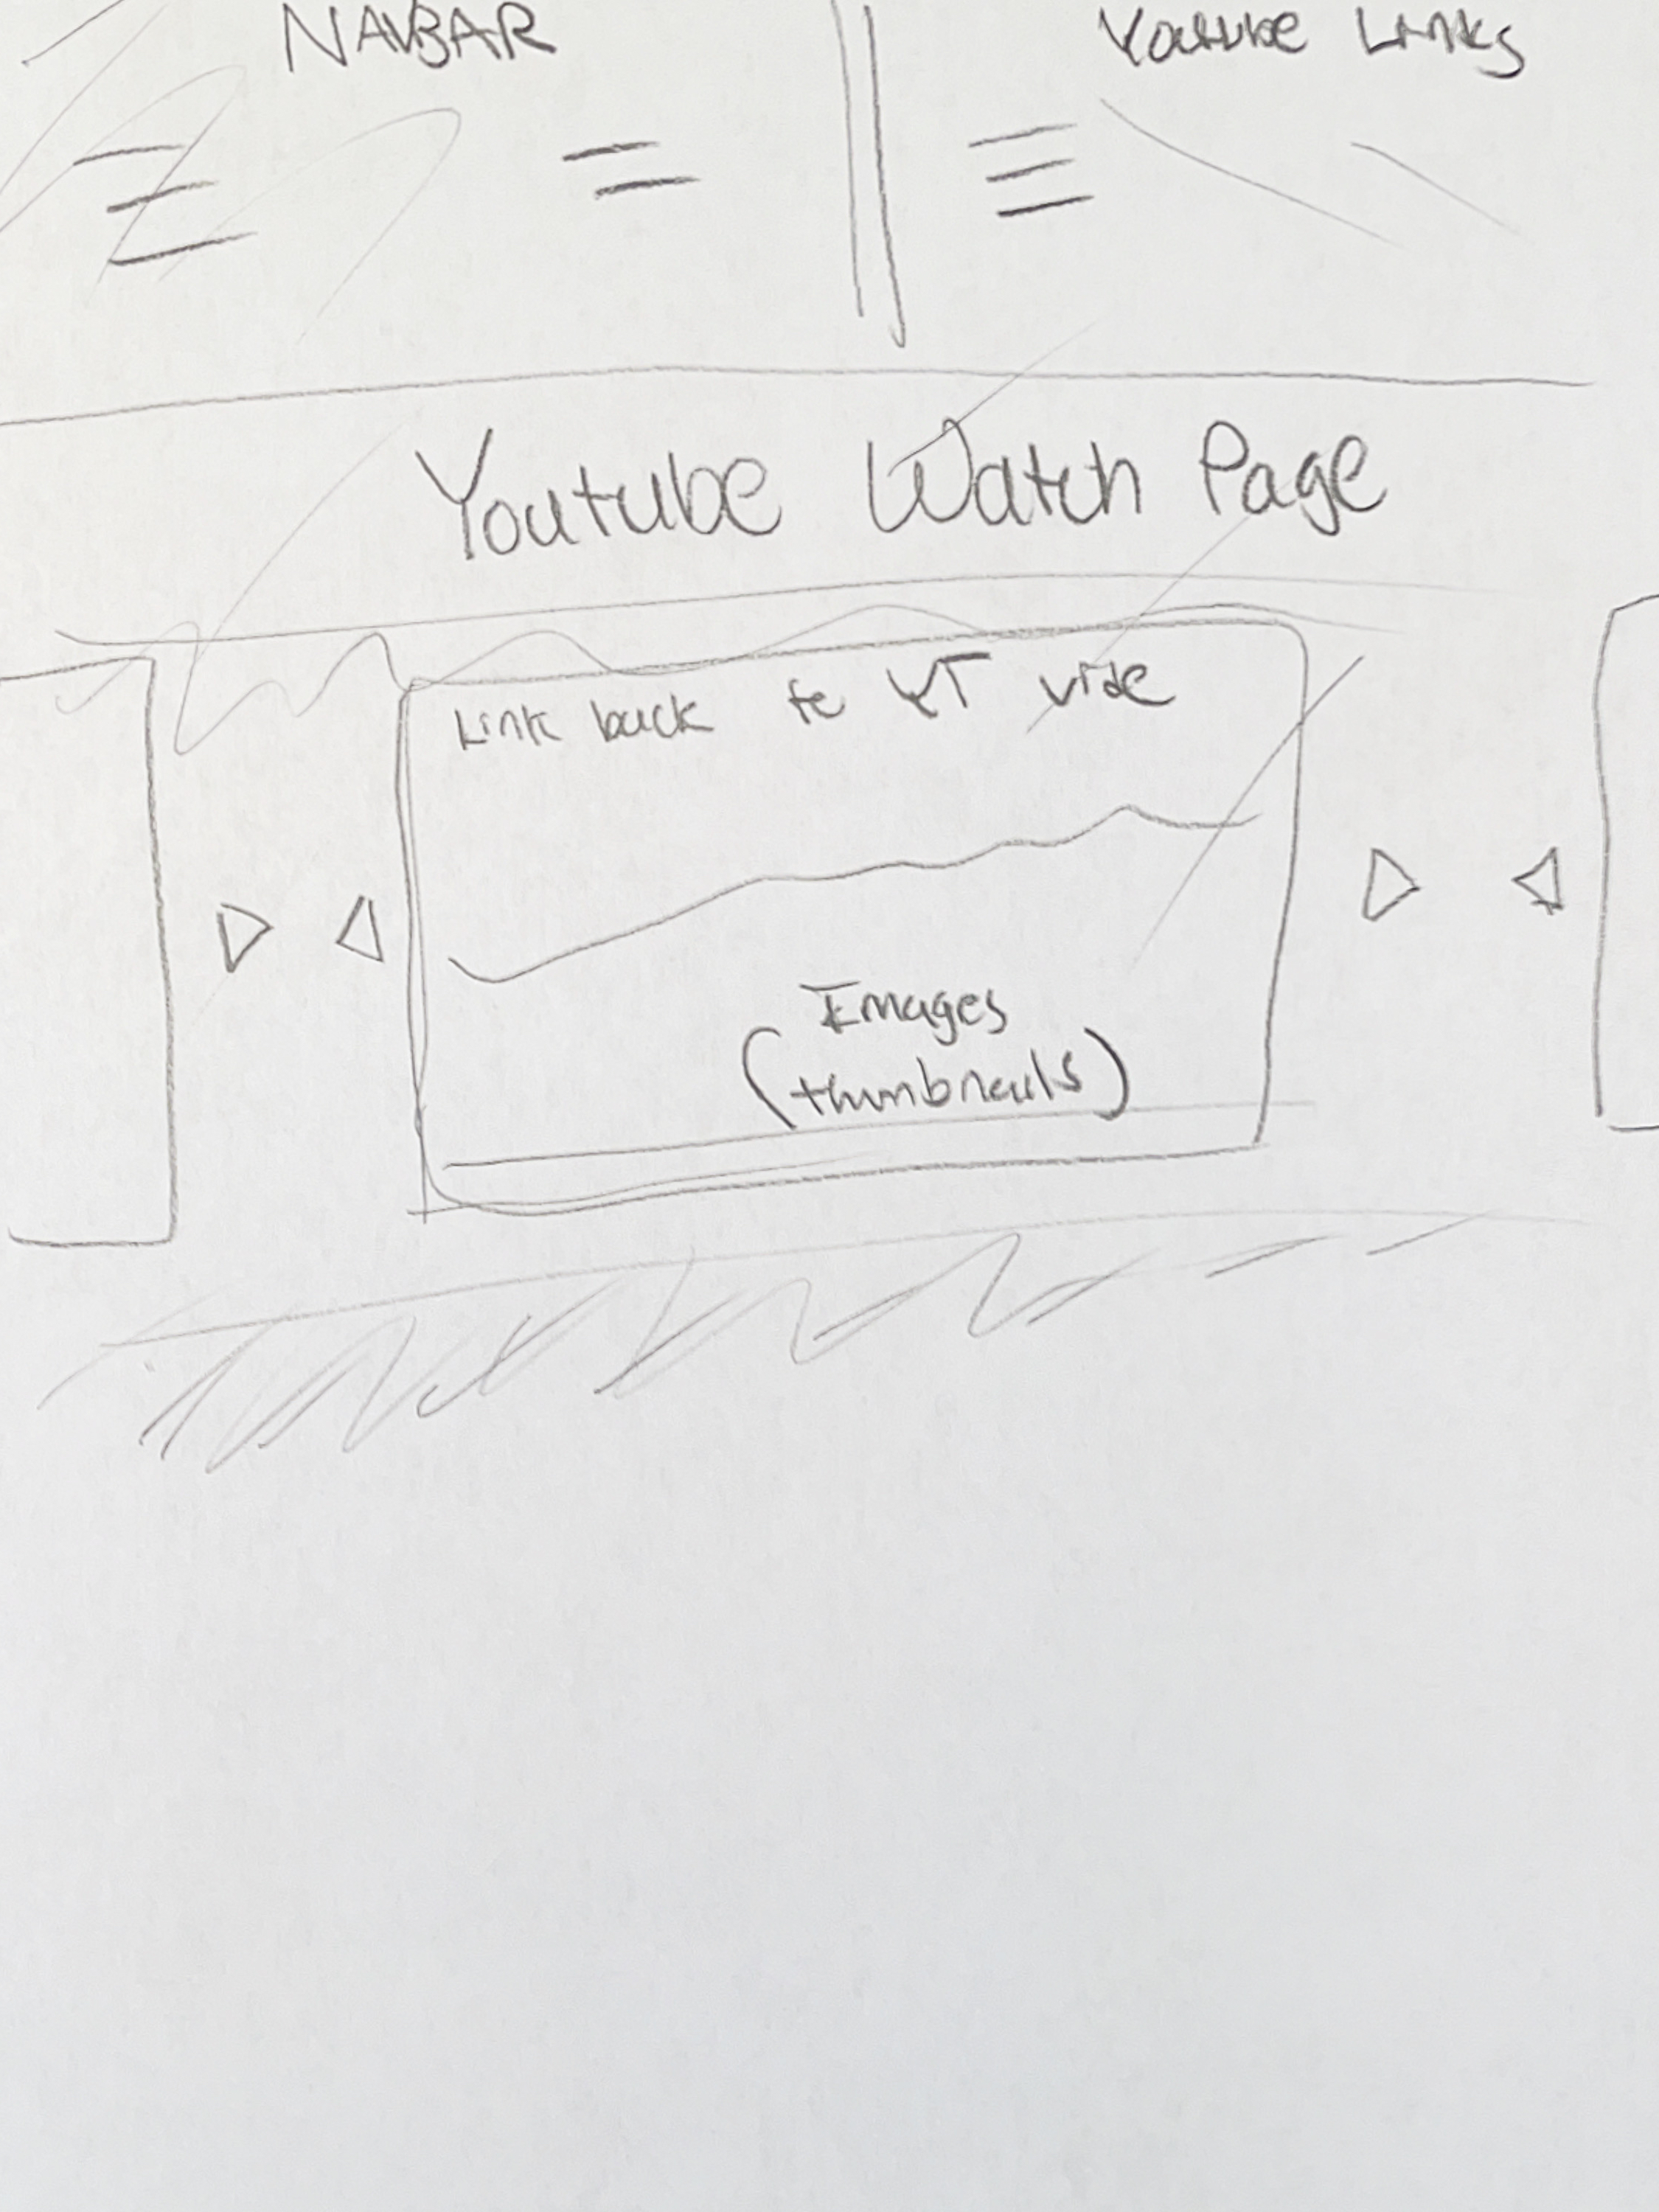 NAVBAR
Youtube Links
Youtube Watch Page
Link back to YT vide
Images
(thumbnails)